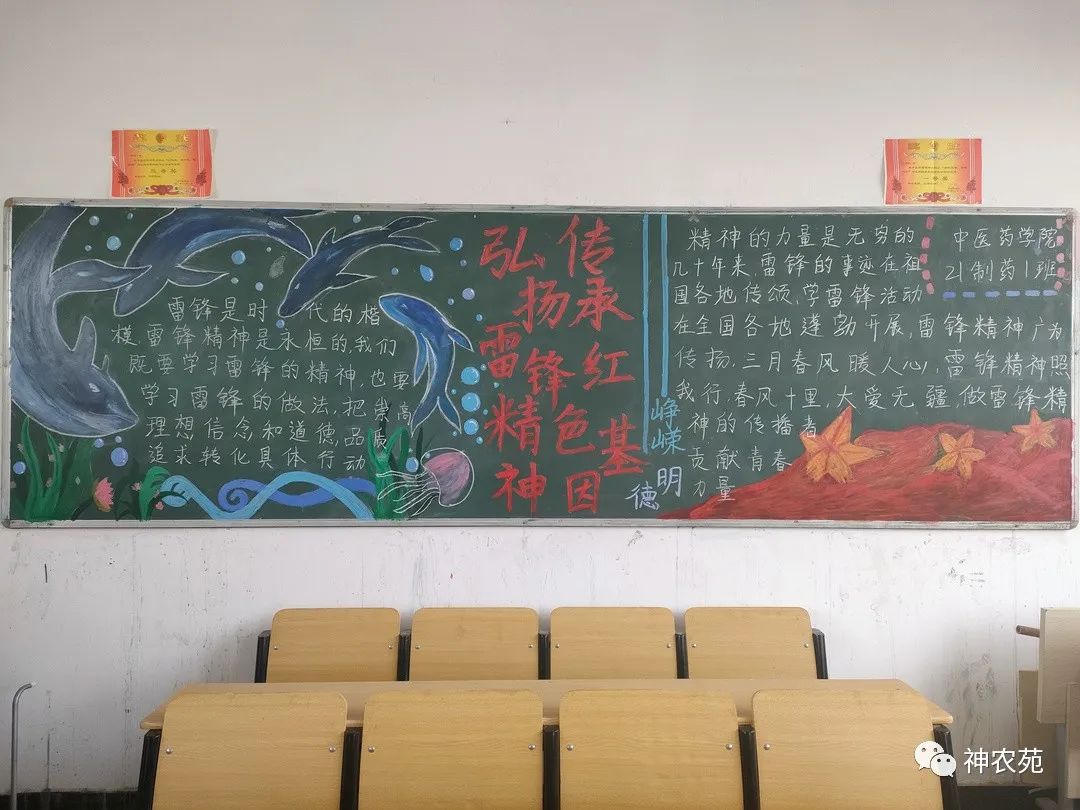 三等奖
一等奖
雷锋是时代的楷
模,雷锋精神是永恒的,我们
既要学习雷锋的精神,也要
学习雷锋的做法,把崇高
理想信念和道德品质
追求转化具体行动
传承红色基因
弘扬雷锋精神
峥嵘
明德
精神的力量是无穷的
几十年来,雷锋的事迹在祖
国各地传颂,学雷锋活动
在全国各地蓬勃开展,雷锋精神广为
传扬,三月春风暖人心,雷锋精神照
我行,春风十里,大爱无疆做雷锋精
神的传播者
贡献青春
力量
中医药学院
21制药1班
神农苑